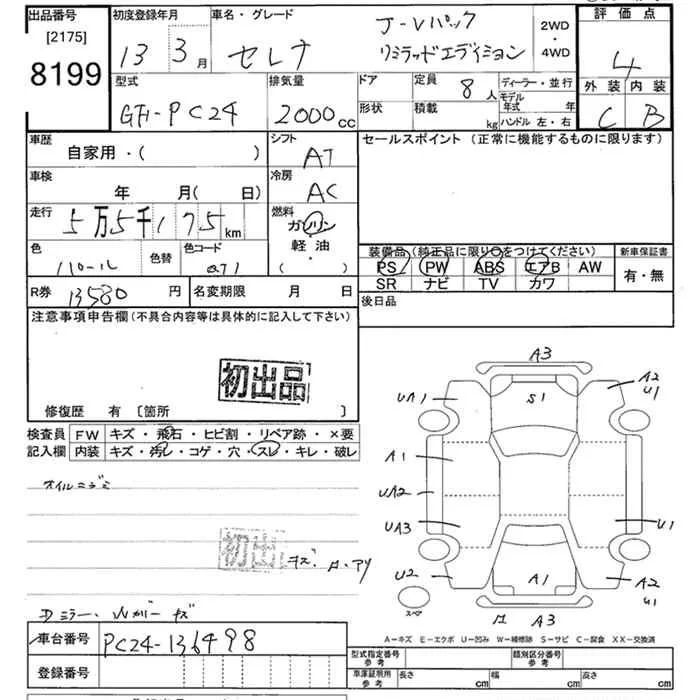 出品番号 初度登録年月 車名・グレード J-Vパック 2WD ・ 4WD 評価点
[2175]
8199 13 3月 セレナ リミテッドエディション 4
型式 排気量 ドア 定員 8人 ディーラー・並行 外装 内装
GF1-PC24 2000cc 形状 積載 kg モデル年式 年 ハンドル 左・右 C B
車歴 シフト セールスポイント (正常に機能するものに限ります)
自家用・( ) AT
車検 年 月( 日) 冷房 AC
走行 5万5千175km 燃料 ガソリン
軽油・( )
色 パール 色替 色コード 装備品 (純正品に限り○をつけてください) 新車保証書
PS PW ABS エアB AW 有・無
SR ナビ TV カワ
R券 13580円 名変期限 月 日 後日品
注意事項申告欄 (不具合内容等は具体的に記入して下さい)
初出品
修復歴 有 [箇所 ]
検査員 FW キズ・飛石・ヒビ割・リペア跡・×要
記入欄 内装 キズ・汚レ・コゲ・穴・スレ・キレ・破レ
オイルニジミ
初出
キズ・A・アリ
Dミラー・Wガリ キズ
A3
A2
UA1 S1 U1
A1
UA2
UA3 U1
U2 A1 A2
U1
スペア A3
A-キズ E-エクボ U-凹み W-補修跡 S-サビ C-腐食 XX-交換済
車台番号 PC24-136498
型式指定番号 参考 類別区分番号 参考
登録番号 車庫証明用 参考 長さ cm 幅 cm 高さ cm